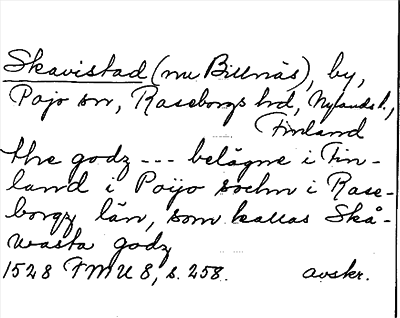 Skavistad (nu Billnäs), by,
Pojo sn, Raseborgs hd, Nylands l.,
Finland
the godz --- belägne i Fin-
land i Poijo sochn i Rase-
borgz län, som kallas Skå-
wasta godz
1528 FMU 8, s. 258. avskr.